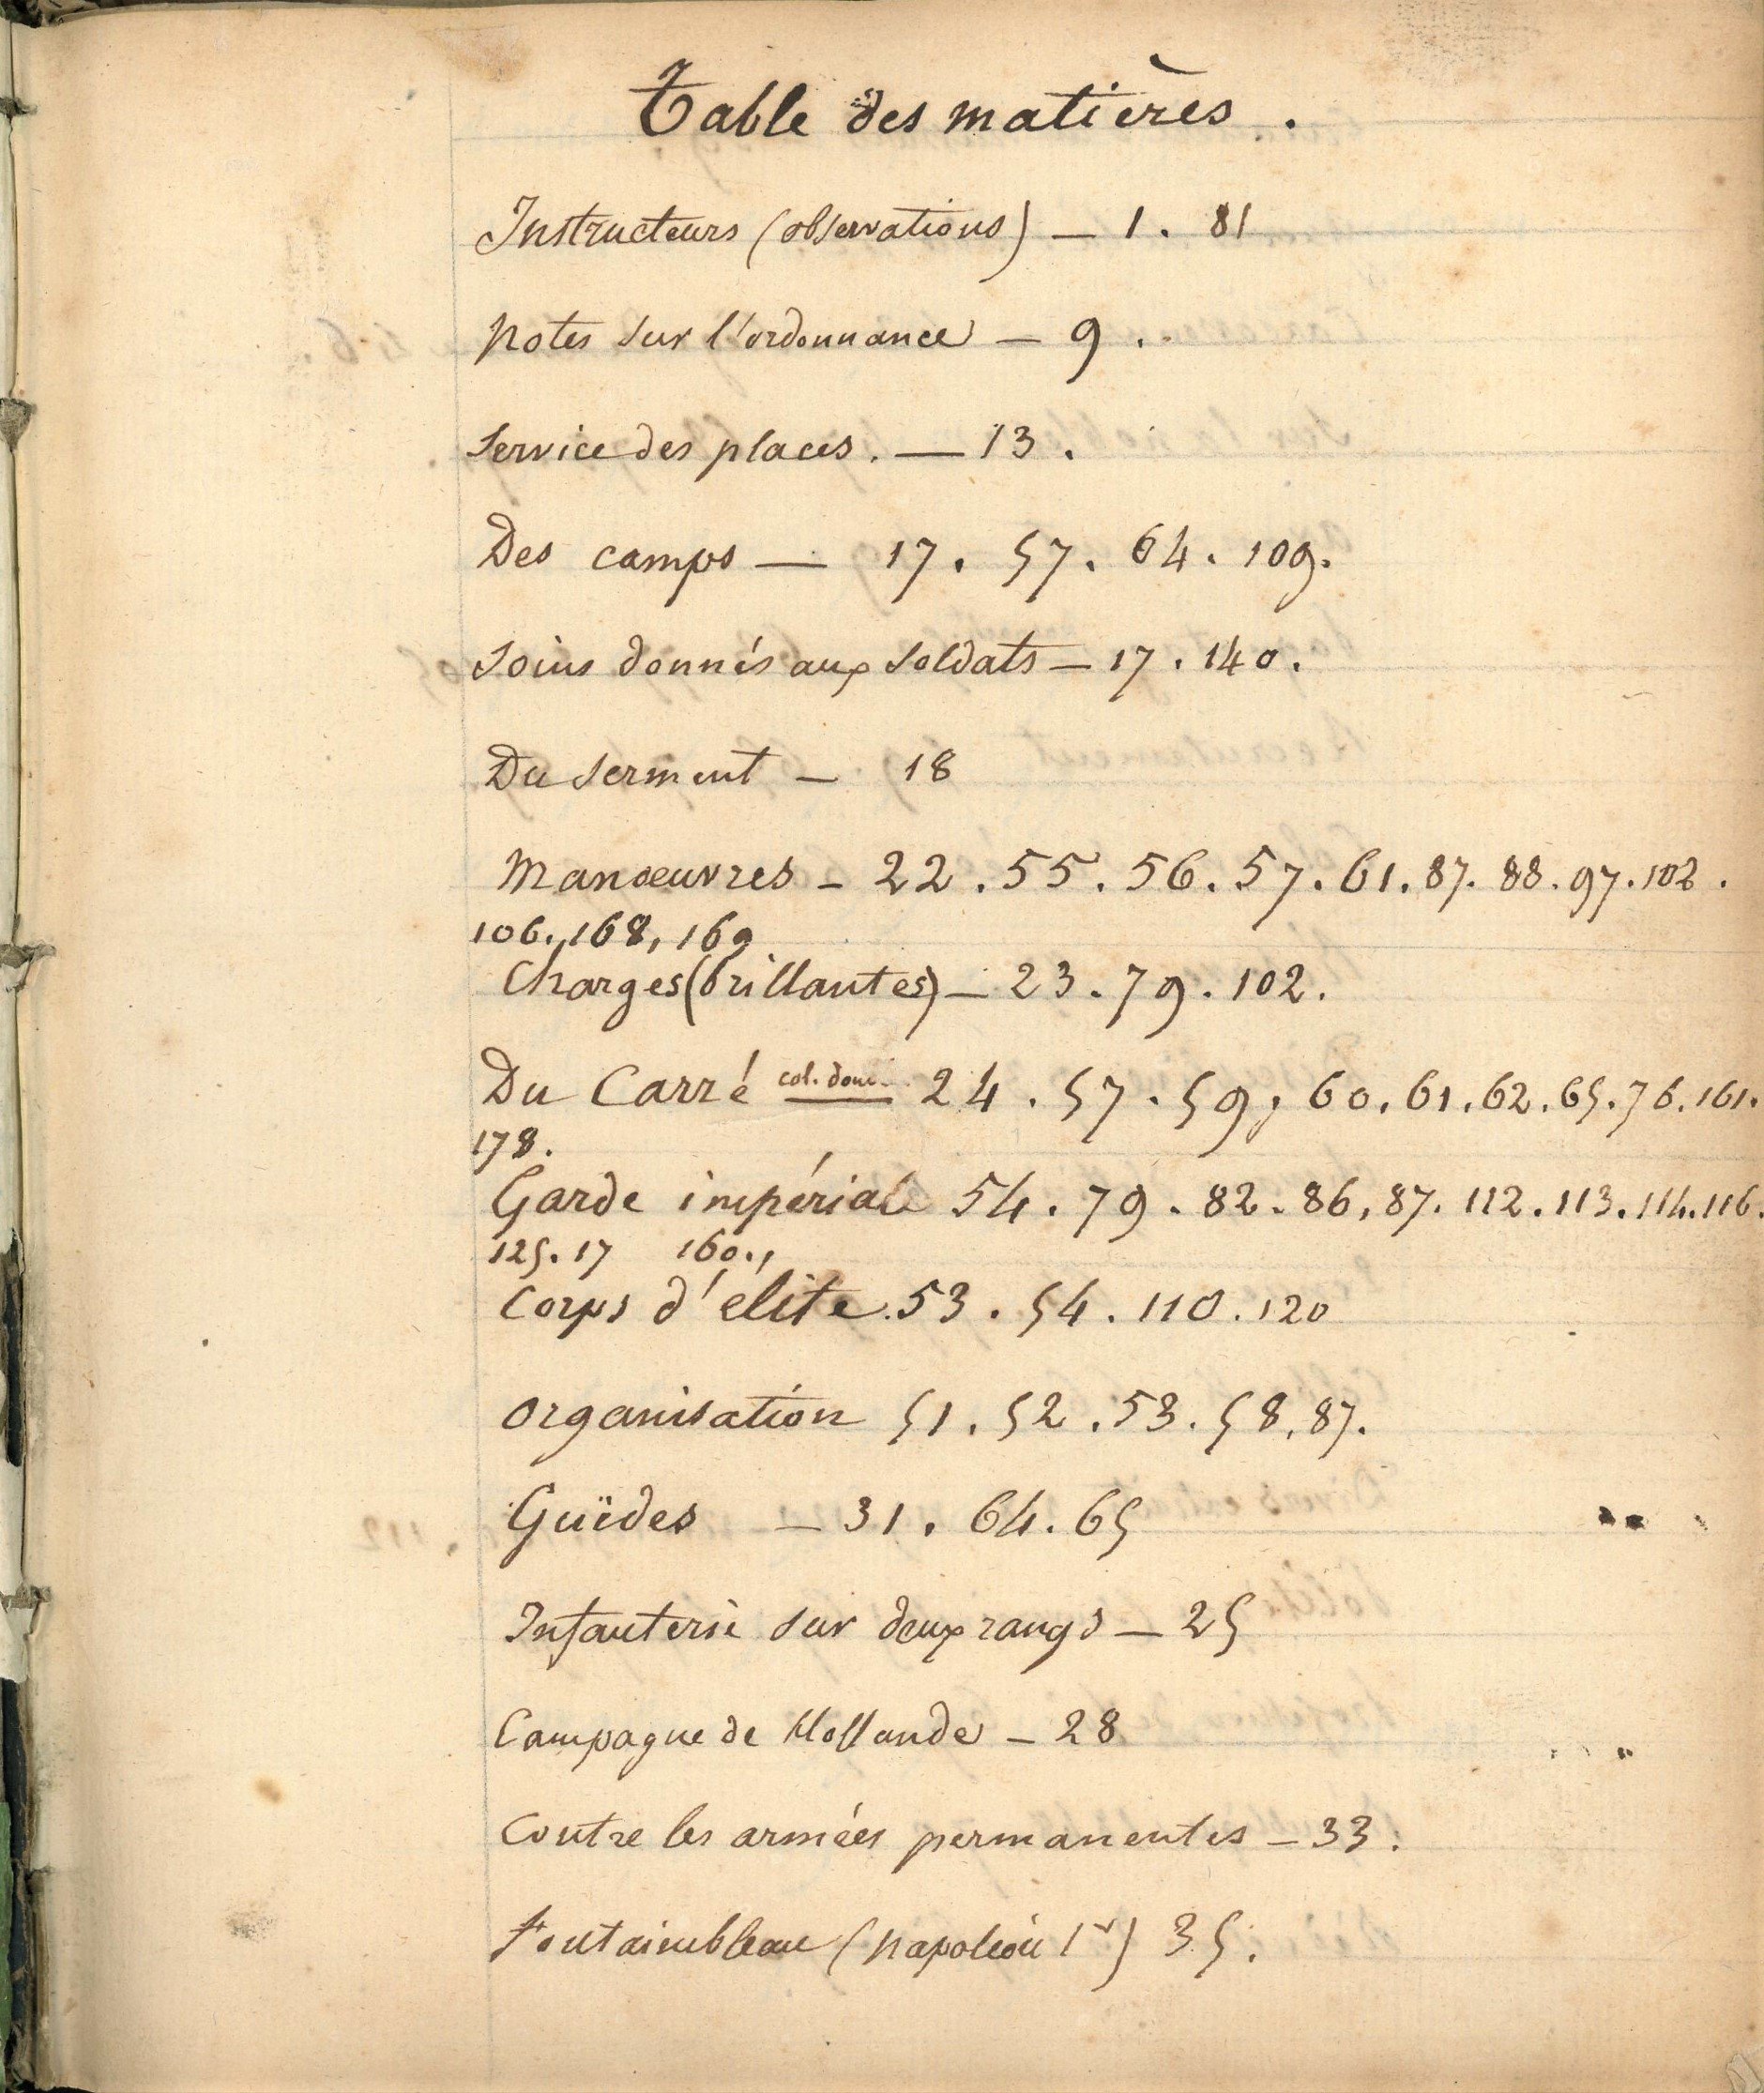 Table des matières.
Instructeurs (observations) — 1. 81
Notes sur l'ordonnance — 9.
Service des places. — 13.
Des camps — 17. 57. 64. 109.
Soins donnés aux soldats — 17. 140.
Du serment — 18
Manœuvres — 22. 55. 56. 57. 61. 87. 88. 97. 102.
106. 168, 169
Charges (brillantes) — 23. 79. 102.
Du Carré col. — 24. 57. 59, 60. 61. 62. 65. 76. 161.
178.
Garde impériale 54. 79. 82. 86, 87. 112. 113. 114. 116.
125. 17 160.,
Corps d'élite. 53. 54. 110. 120
Organisation 51. 52. 53. 58, 87.
Guïdes — 31. 64. 65
Infanterie sur deux rangs — 25
Campagne de Hollande — 28
Contre les armées permanentes — 33.
Fontainebleau (Napoléon 1r) 35.